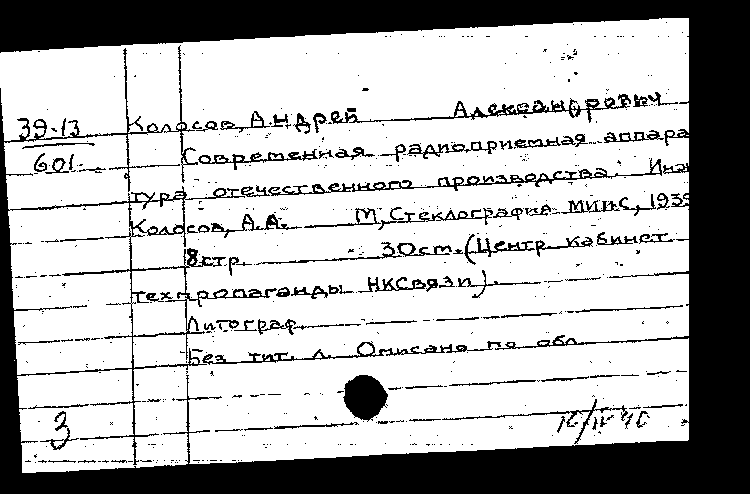 39-13
601.
Колосов, Андрей Александрович
Современная радиоприемная аппара
тура отечественного производства: Инж
Колосов, А.А. М, Стеклография МИИС, 1939
8стр. 30cm. (Центр. кабинет
техпропаганды НКСвязи).
Литограф.
Без тит. л. Описано по обл.
3